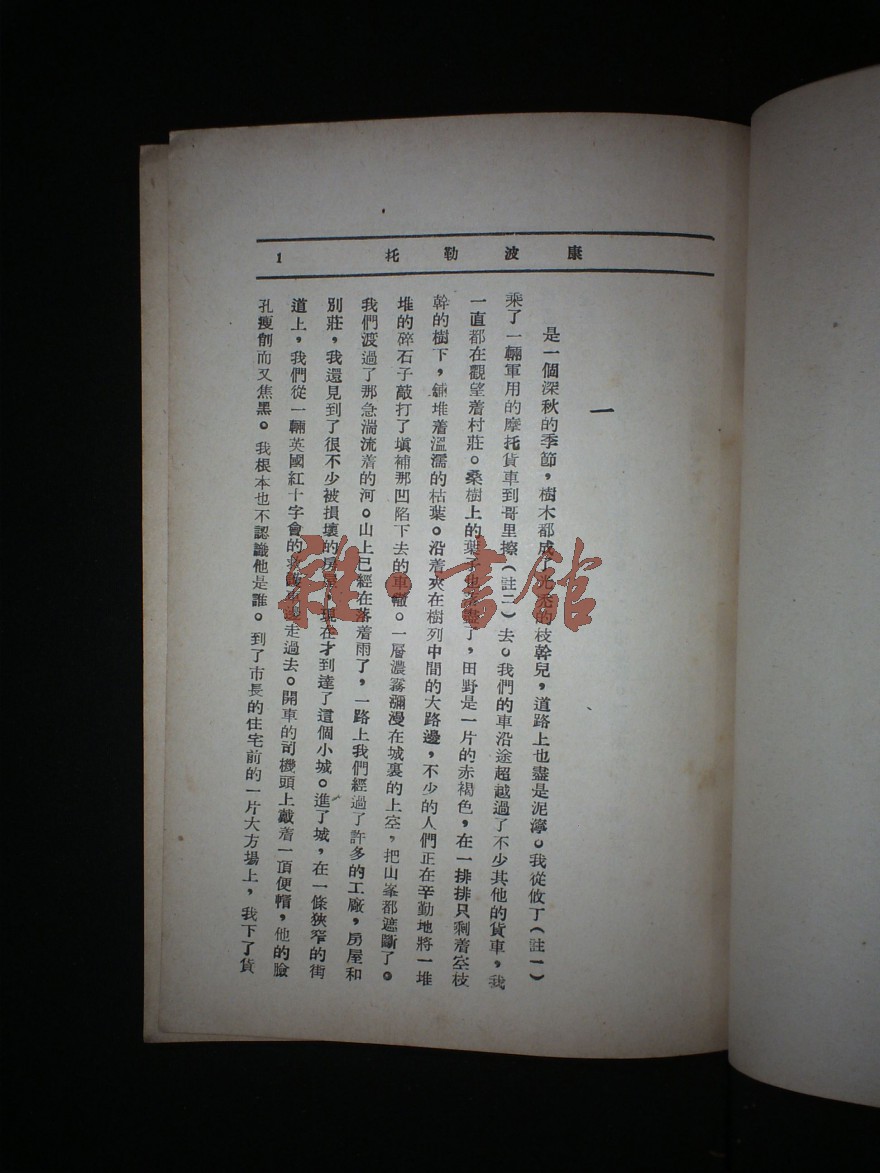 康波勒托 1
一
是一個深秋的季節，樹木都成了光禿的枝幹兒，道路上也盡是泥濘。我從攸丁（註一）
乘了一輛軍用的摩托貨車到哥里擦（註二）去。我們的車沿途超越過了不少其他的貨車，我
一直都在觀望着村莊。桑樹上的葉子也落盡了，田野是一片的赤褐色，在一排排只剩着空枝
幹的樹下，鋪堆着溫濡的枯葉。沿着夾在樹列中間的大路邊，不少的人們正在辛勤地將一堆
堆的碎石子敲打了塡補那凹陷下去的車轍。一層濃霧瀰漫在城裏的上空，把山峯都遮斷了。
我們渡過了那急湍流着的河。山上已經在落着雨了，一路上我們經過了許多的工廠，房屋和
別莊，我還見到了很不少被損壞的房屋，現在才到達了這個小城。進了城，在一條狹窄的街
道上，我們從一輛英國紅十字會的救護車邊走過去。開車的司機頭上戴着一頂便帽，他的臉
孔瘦削而又焦黑。我根本也不認識他是誰。到了市長的住宅前的一片大方場上，我下了貨
雜·書館